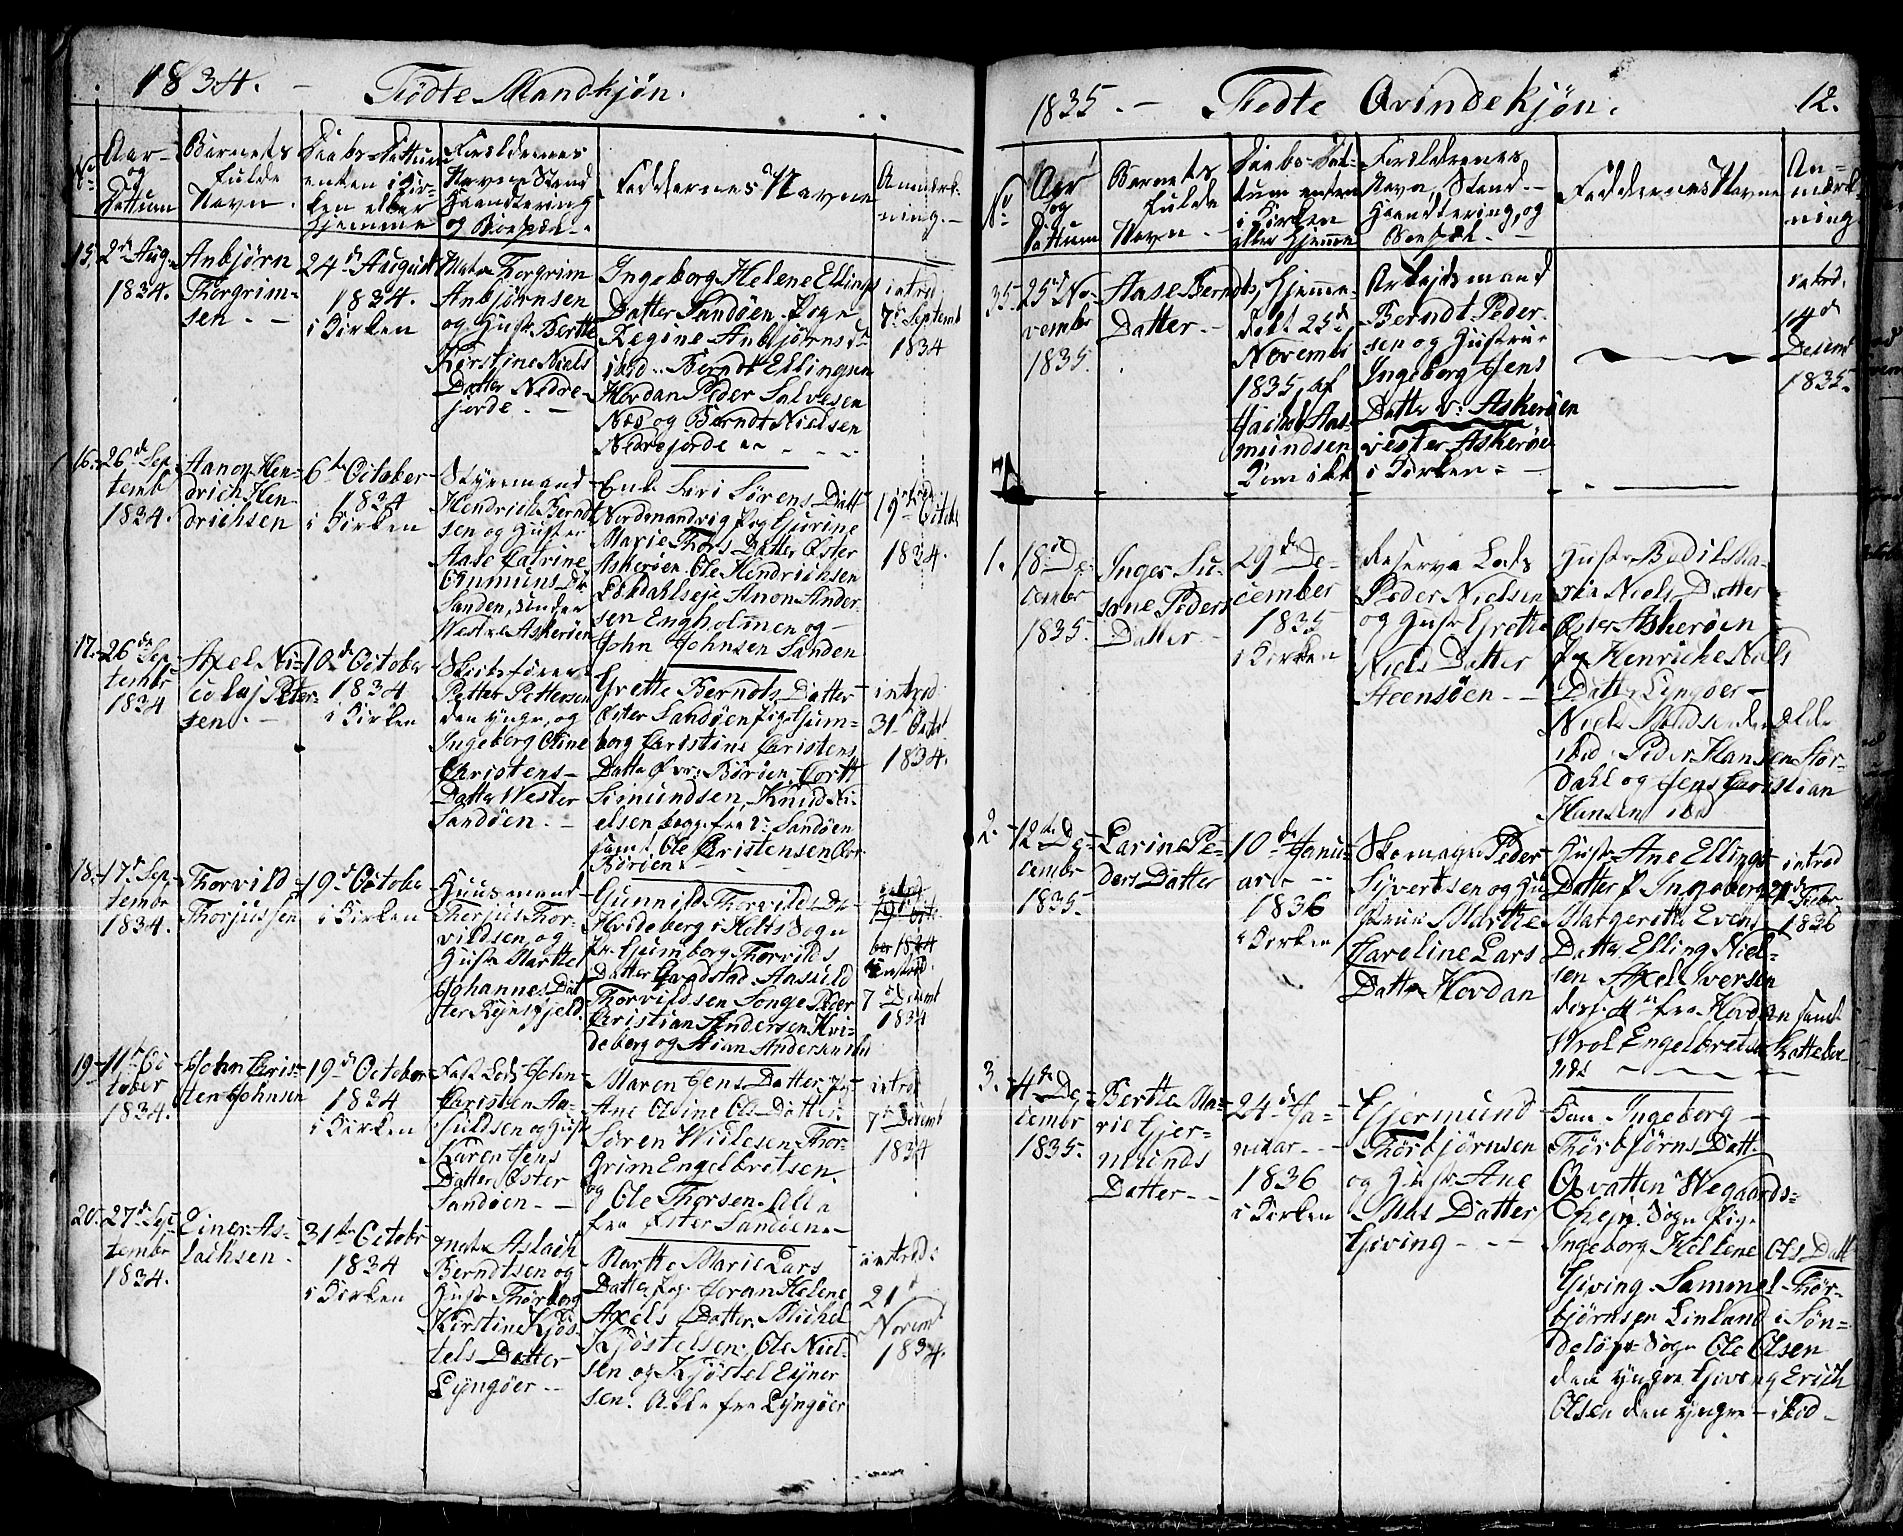 1834. - Fødte Mandkjøn.
No
Aar og Dattum
Barnets fulde Navn.
Daabs-Dattum enten i Kirken eller Hjemme
Forældrenes Navn, Stand Haandtering og Boepæl.
Faddernes Navne
Anmærkning.
15.
2den Aug. 1834.
Anbjørn
Thorgrim-
sen
24de August
1834.
i Kirken
Thorgrim
Anbjørnsen
og Hustr Berthe
Kirstine Niels
Datter Nedre-
fjorde.
Ingeborg Helene Ellings
Datter Sandøen, Pige
Regine Anbjørnsd
ibid. Berndt Ellingsen
Hovdan Peder Salvesen
Næs og Berndt Nielsen
Nedrefjorde
introd
7de Septemb
1834
16.
26de Sep-
temb
1834.
Aanon Hen-
drich Hen-
drichsen
6te October
1834
i Kirken
Styrmand
Hendrich Berndt
sen og Hustru
Aase Catrine
Amunds Dtr
Sanden, under
Westre Askerøen
Enke Siri Sørens Datt
Nordmandvig Pig Gjurine
Marie Thors Datter Øster
Askerøen Ole Hendrichsen
Eckdahlseje Anon Ander
sen Engholmen og
John Johnsen Sanden
introd
19de Octob
1834.
17.
26de Sep
tembr
1834
Axel Ni-
colaj Peter-
sen.
10de October
1834
i Kirken
Skibsfører
Petter Pettersen
den yngre, og
Ingeborg Oline
Christens
Datter Wester
Sandøen.
Grette Berndts Datter
Øster Sandøen Pige Gum-
borg Christine Christens
Datter Øvr: Børøen, Cortt
Simundsen, Knud Ni-
elsen begge fra V: Sandøen
samt Ole Christensen Over
Børøen.
introd
31te Octob
1834.
18.
17de Sep
tembr
1834.
Thorvild
Thorjussen
19de October
i Kirken
Huusmand
Therjus Thor-
vildsen og
Hustr Marthe
Johannes Dat
ter Rejnsfjeld.
Gunnild Thorvilds D
Hvideberg i Holts Sogn
Pr Gjumborg Thorvilds
Datter Qvadstad Aasuld
Thorvildsen Songe Peder
Christian Andersen Hvi-
deberg og Stian Andersen ibd
introd
19de Octo
ber 1834
introd
7de Decemb
1834
19.
11te Oc
tober
1834.
John Chris-
ten Johnsen
19de October
1834
i Kirken
Fast Lods John
Christen Aa-
suldsen og Hust
Karen Jens
Datter Øster
Sandøen
Maren Jens Datter, Pig
Ane Olsine Ols Datter
Søren Willesen Thor-
Grim Engelbretsen
og Ole Thorsen Alle
fra Øster Sandøen
introd
7de Decemb
1834
20.
27de Sep
tembr
1834.
Einer As-
lachsen.
31te Octobr
1834
i Kirken
Aslach
Berndtsen og
Hustr Thorborg
Kirstine Kjøs
tels Datter
Lyngøer
Marthe Marie Lars
Datter Pig Joran Helene
Axels Datter Michel
Kjøstelsen, Ole Niel-
sen og Kjøstel Ejner
sen. Alle fra Lyngøer
introd:
21de
Novemb
1834.
1835. - Fødte Qvindekjøn. 12.
No
Aar og Dattum
Barnets fulde Navn.
Daabs Dattum enten i Kirken eller Hjemme
Forældrenes Navn, Stand Haandtering, og Boepæl.
Faddernes Navne
Anmærkning
35.
25de No-
vembr
1835.
Aase Berndts
Datter
Hjemme-
døbt 25de
Novembr
1835, af
Jacob Aas-
mundsen
Kom ikke
Arbejdsmand
Berndt Peder
sen og Hustru
Ingeborg Jens
Datter v: Askerøen
vester Askerøe
i Kirken
introd.
14de
Decemb
1835.
1.
18de De
cembr
1835.
Inger Su-
sane Peders
Datter
29de De-
cember
1835
i Kirken
Reserve Lods
Peder Nielsen
og Hustr Grethe
Niels Datter
Steensøen
Hustr Bodil Ma-
ria Niels Datter
Øster Askerøen
Pg Henriche Niels
Datter Lyngøer
Niels Madsen den ælde
ibid. Peder Hansen Stor-
Dahl og Jens Christian
Hansen ibd
2.
12te De-
cembr
1835.
Larine Pe-
ders Datter
10de Janu-
ar
1836
i Kirken
Skomager Peder
Syvertsen og Hu
strue Marthe
Karoline Lars
Datter Hovdan
Hustr Ane Ellings
Datter P Ingeborg
Margerette Evens
Datter Elling Niel-
sen Axel Iversen
fra Hovdan samt
Wrol Engelbretsen Kattebu
næs
introd
21de Febr
1836
3.
4de De-
cembr
1835.
Berthe Ma-
rie Gjer-
munds
Datter
24de Ja-
nuar
1836
i Kirken
Gjermund
Thorbjørnsen
og Hustr Ane
Mas Datter
Giving
Kone Ingeborg
Thorbjørns Datt.
Qvatten Wegaards-
Ingeborg Hellene Ols Datt
Giving Sammel Thor-
bjørnsen Linland i Søn-
deløvs Sogn Ole Olsen
den yngre Giving Erich
Olsen den yngre ibid